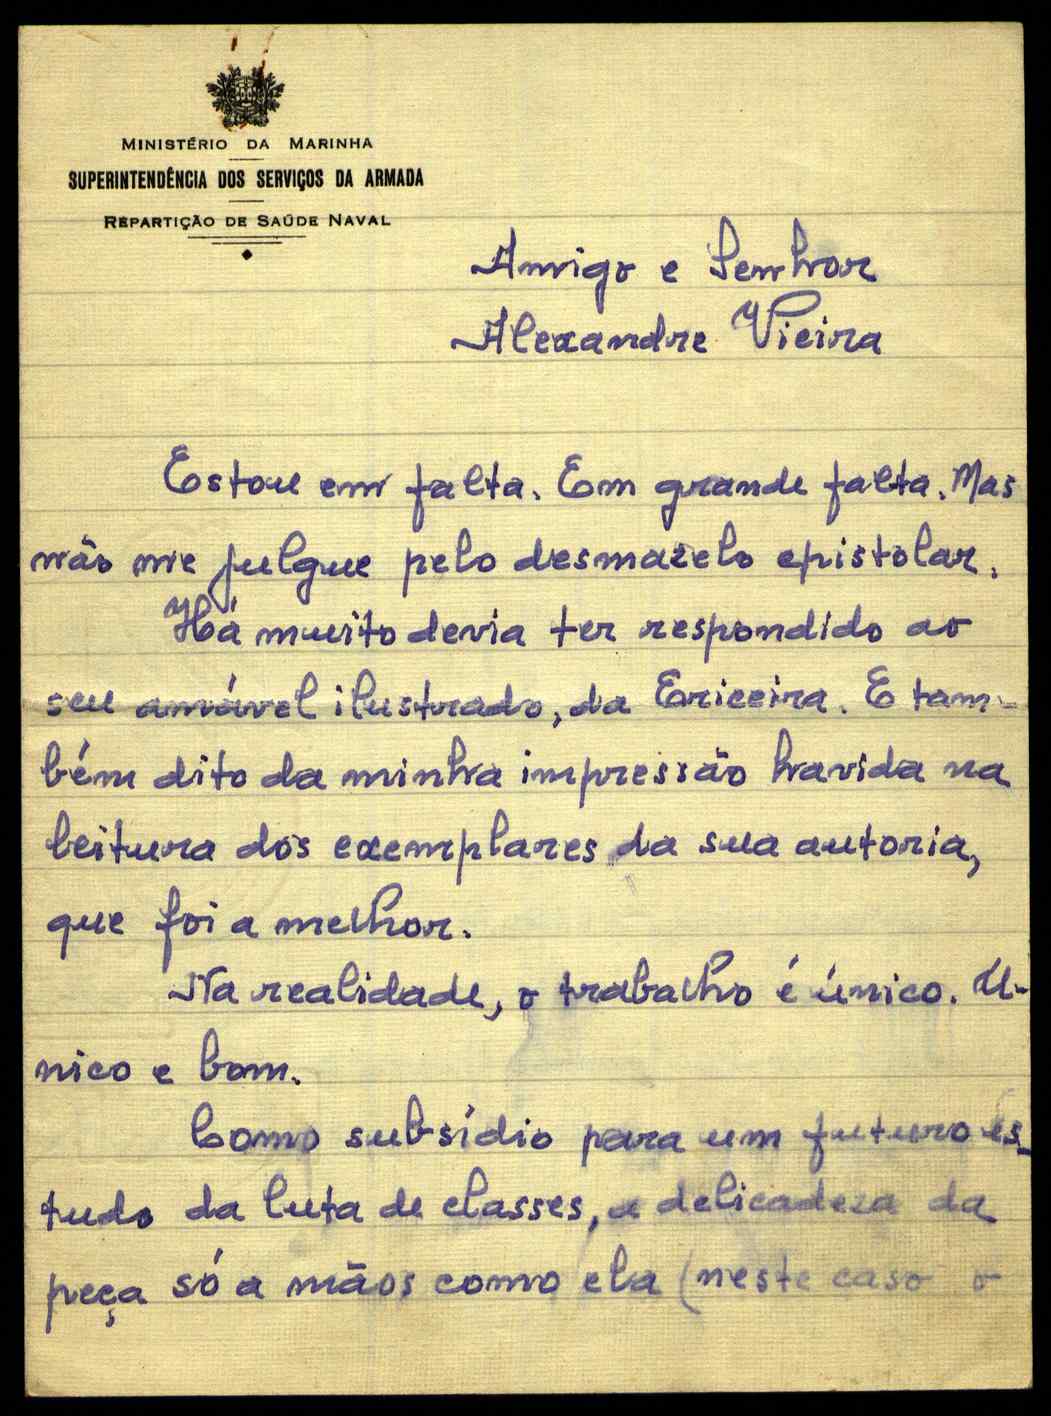 MINISTÉRIO DA MARINHA
SUPERINTENDÊNCIA DOS SERVIÇOS DA ARMADA
REPARTIÇÃO DE SAÚDE NAVAL
Amigo e Senhor
Alexandre Vieira
Estou em falta. Em grande falta. Mas
não me julgue pelo desmazelo epistolar.
Há muito devia ter respondido ao
seu amável ilustrado, da Ericeira. E tam-
bém dito da minha impressão havida na
leitura dos exemplares da sua autoria,
que foi a melhor.
Na realidade, o trabalho é único. Ú-
nico e bom.
Como subsídio para um futuro es-
tudo da luta de classes, a delicadeza da
peça só a mãos como ela (neste caso o